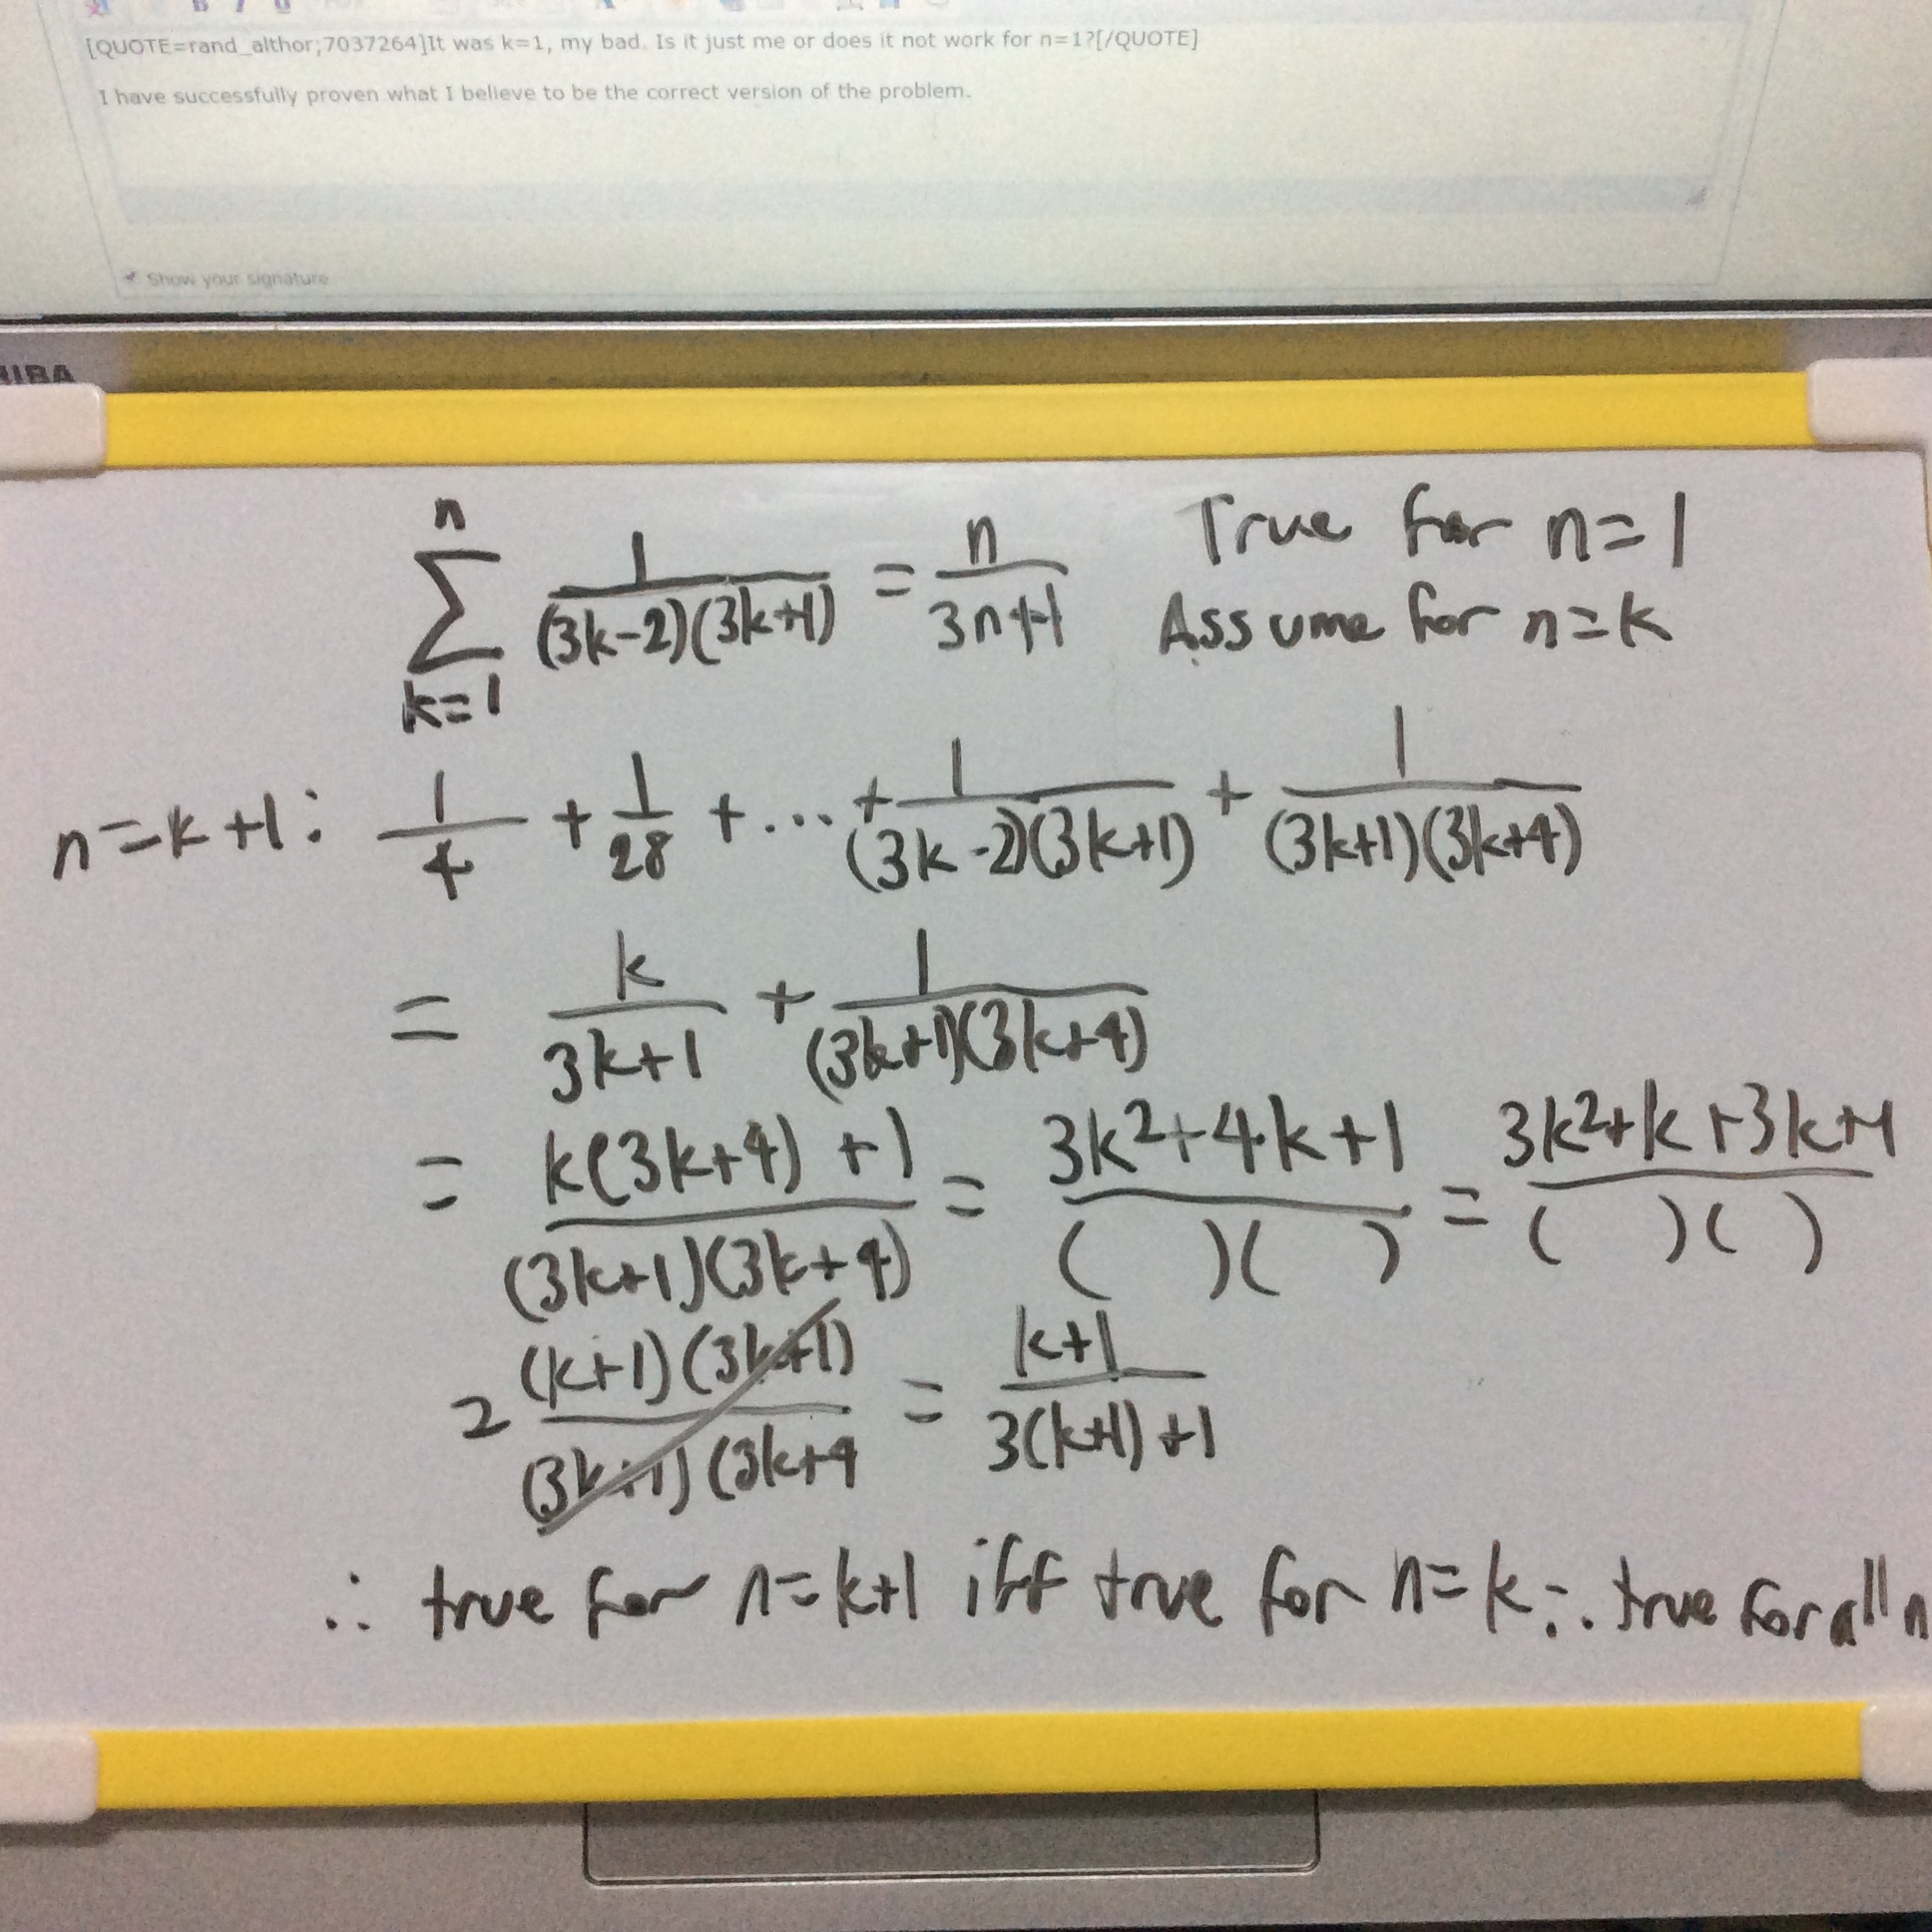 [QUOTE=rand_althor;7037264]It was k=1, my bad. Is it just me or does it not work for n=1?[/QUOTE]
I have successfully proven what I believe to be the correct version of the problem.
Show your signature
n
∑ 1/((3k-2)(3k+1)) = n/(3n+1) True for n=1
k=1 Assume for n=k
n=k+1: 1/4 + 1/28 + ... + 1/((3k-2)(3k+1)) + 1/((3k+1)(3k+4))
= k/(3k+1) + 1/((3k+1)(3k+4))
= (k(3k+4)+1)/((3k+1)(3k+4)) = (3k²+4k+1)/(( )( )) = (3k²+k+3k+1)/(( )( ))
= (k+1)(3k+1)/(3k+1)(3k+4 = (k+1)/(3(k+1)+1)
∴ true for n=k+1 iff true for n=k ∴ true for all n